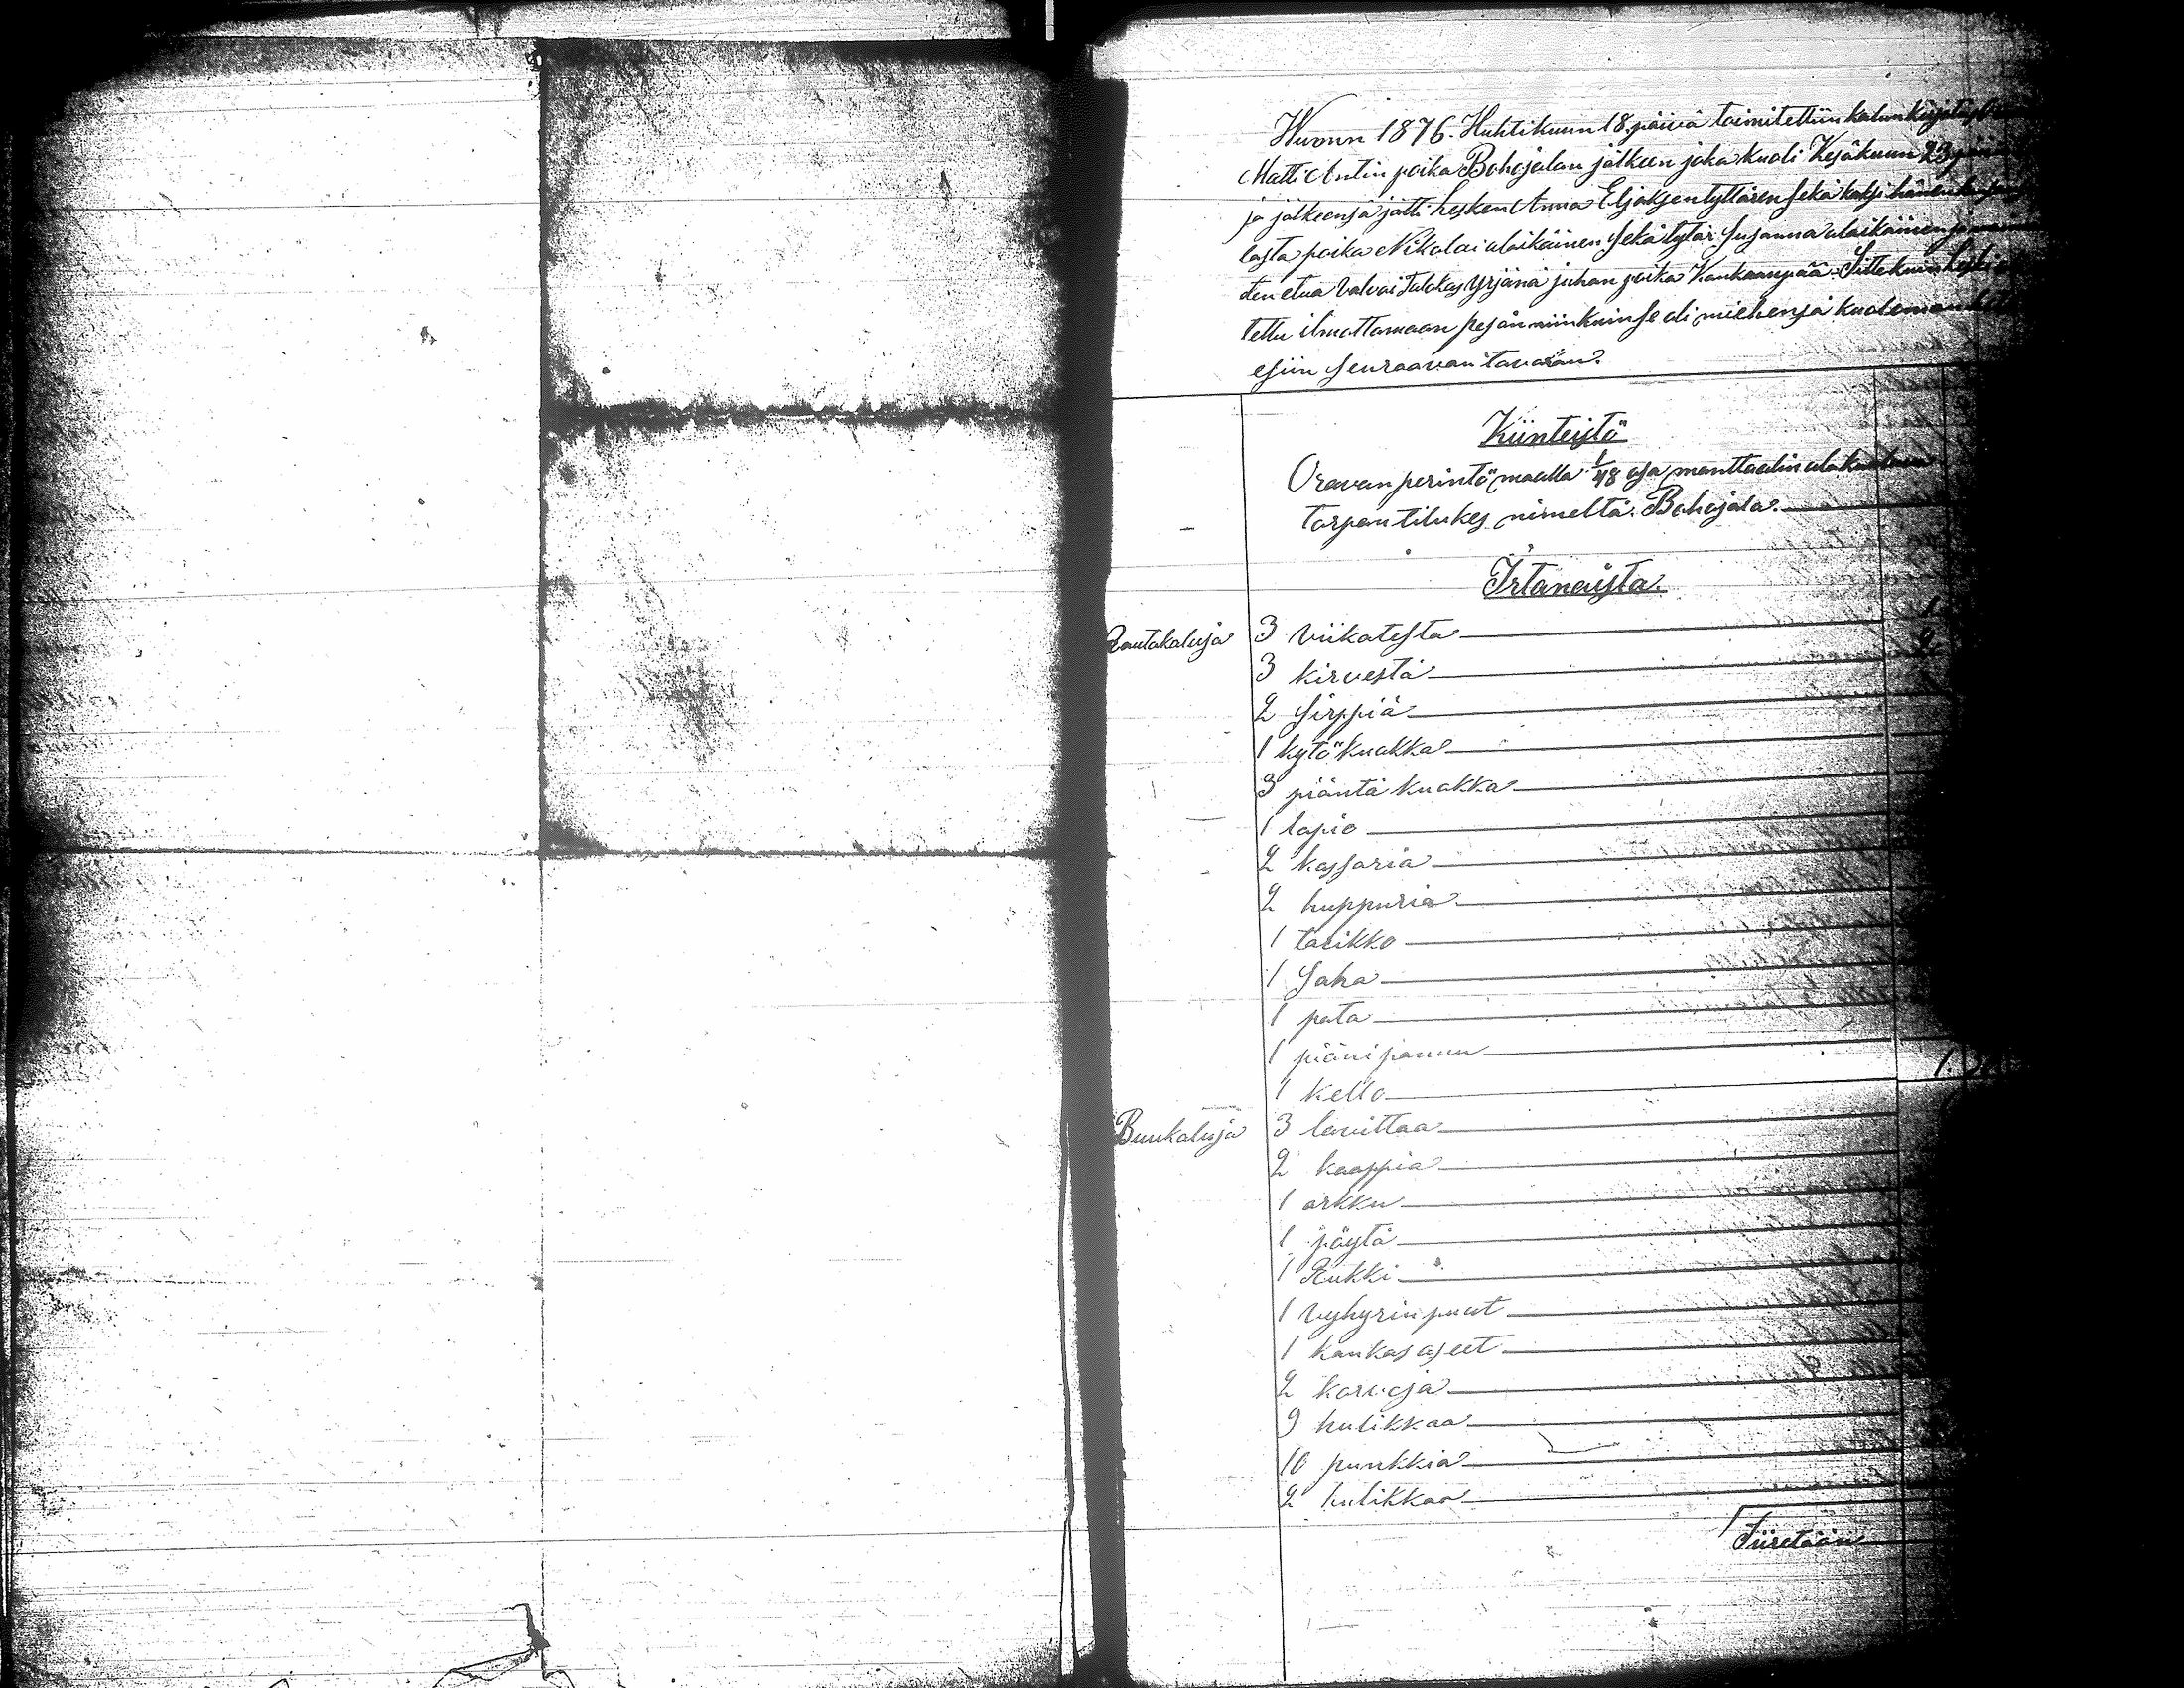 Wuonn 1876. Huhtikuun 18. päivä toimitettiin kalunkirjoitus
Matti Antin poika Bohojalan jälkeen joka kuoli Kesäkuun 23
ja jälkeensä jätti lesken Anna Eljaksen tyttären sekä kaksi hänen
lasta poika Nikolai alaikäinen sekä tytär Susanna alaikäinen
den etua valvoi Talokas Yrjänä juhan poika Kankaanpää. Sittekuin Leski
tettu ilmottamaan pesän niinkuin se oli miehensä kuoleman
esiin seuraavan tavaran.
Kiinteistö
Oravan perintö maalla 1/48 osa manttaalin
torpan tilukes nimeltä Bohojala.
Irtanaista.
Rautakaluja 3 viikatesta 1
3 kirvestä 2
2 sirppiä
1 kytö kuakka
3 piäntä kuakka
1 lapio
2 kassaria
2 huppuria
1 tarikko
1 Saha
1 pata
1 piäni pannu
1 kello
Buukaluja 3 lavittaa
2 kaappia
1 arkku
1 pöytä
1 Rukki
1 vyhyrin puut
1 kankas aseet
2 korvoja
9 hulikkaa
10 punkkia
2 hulikkaa
Siiretään